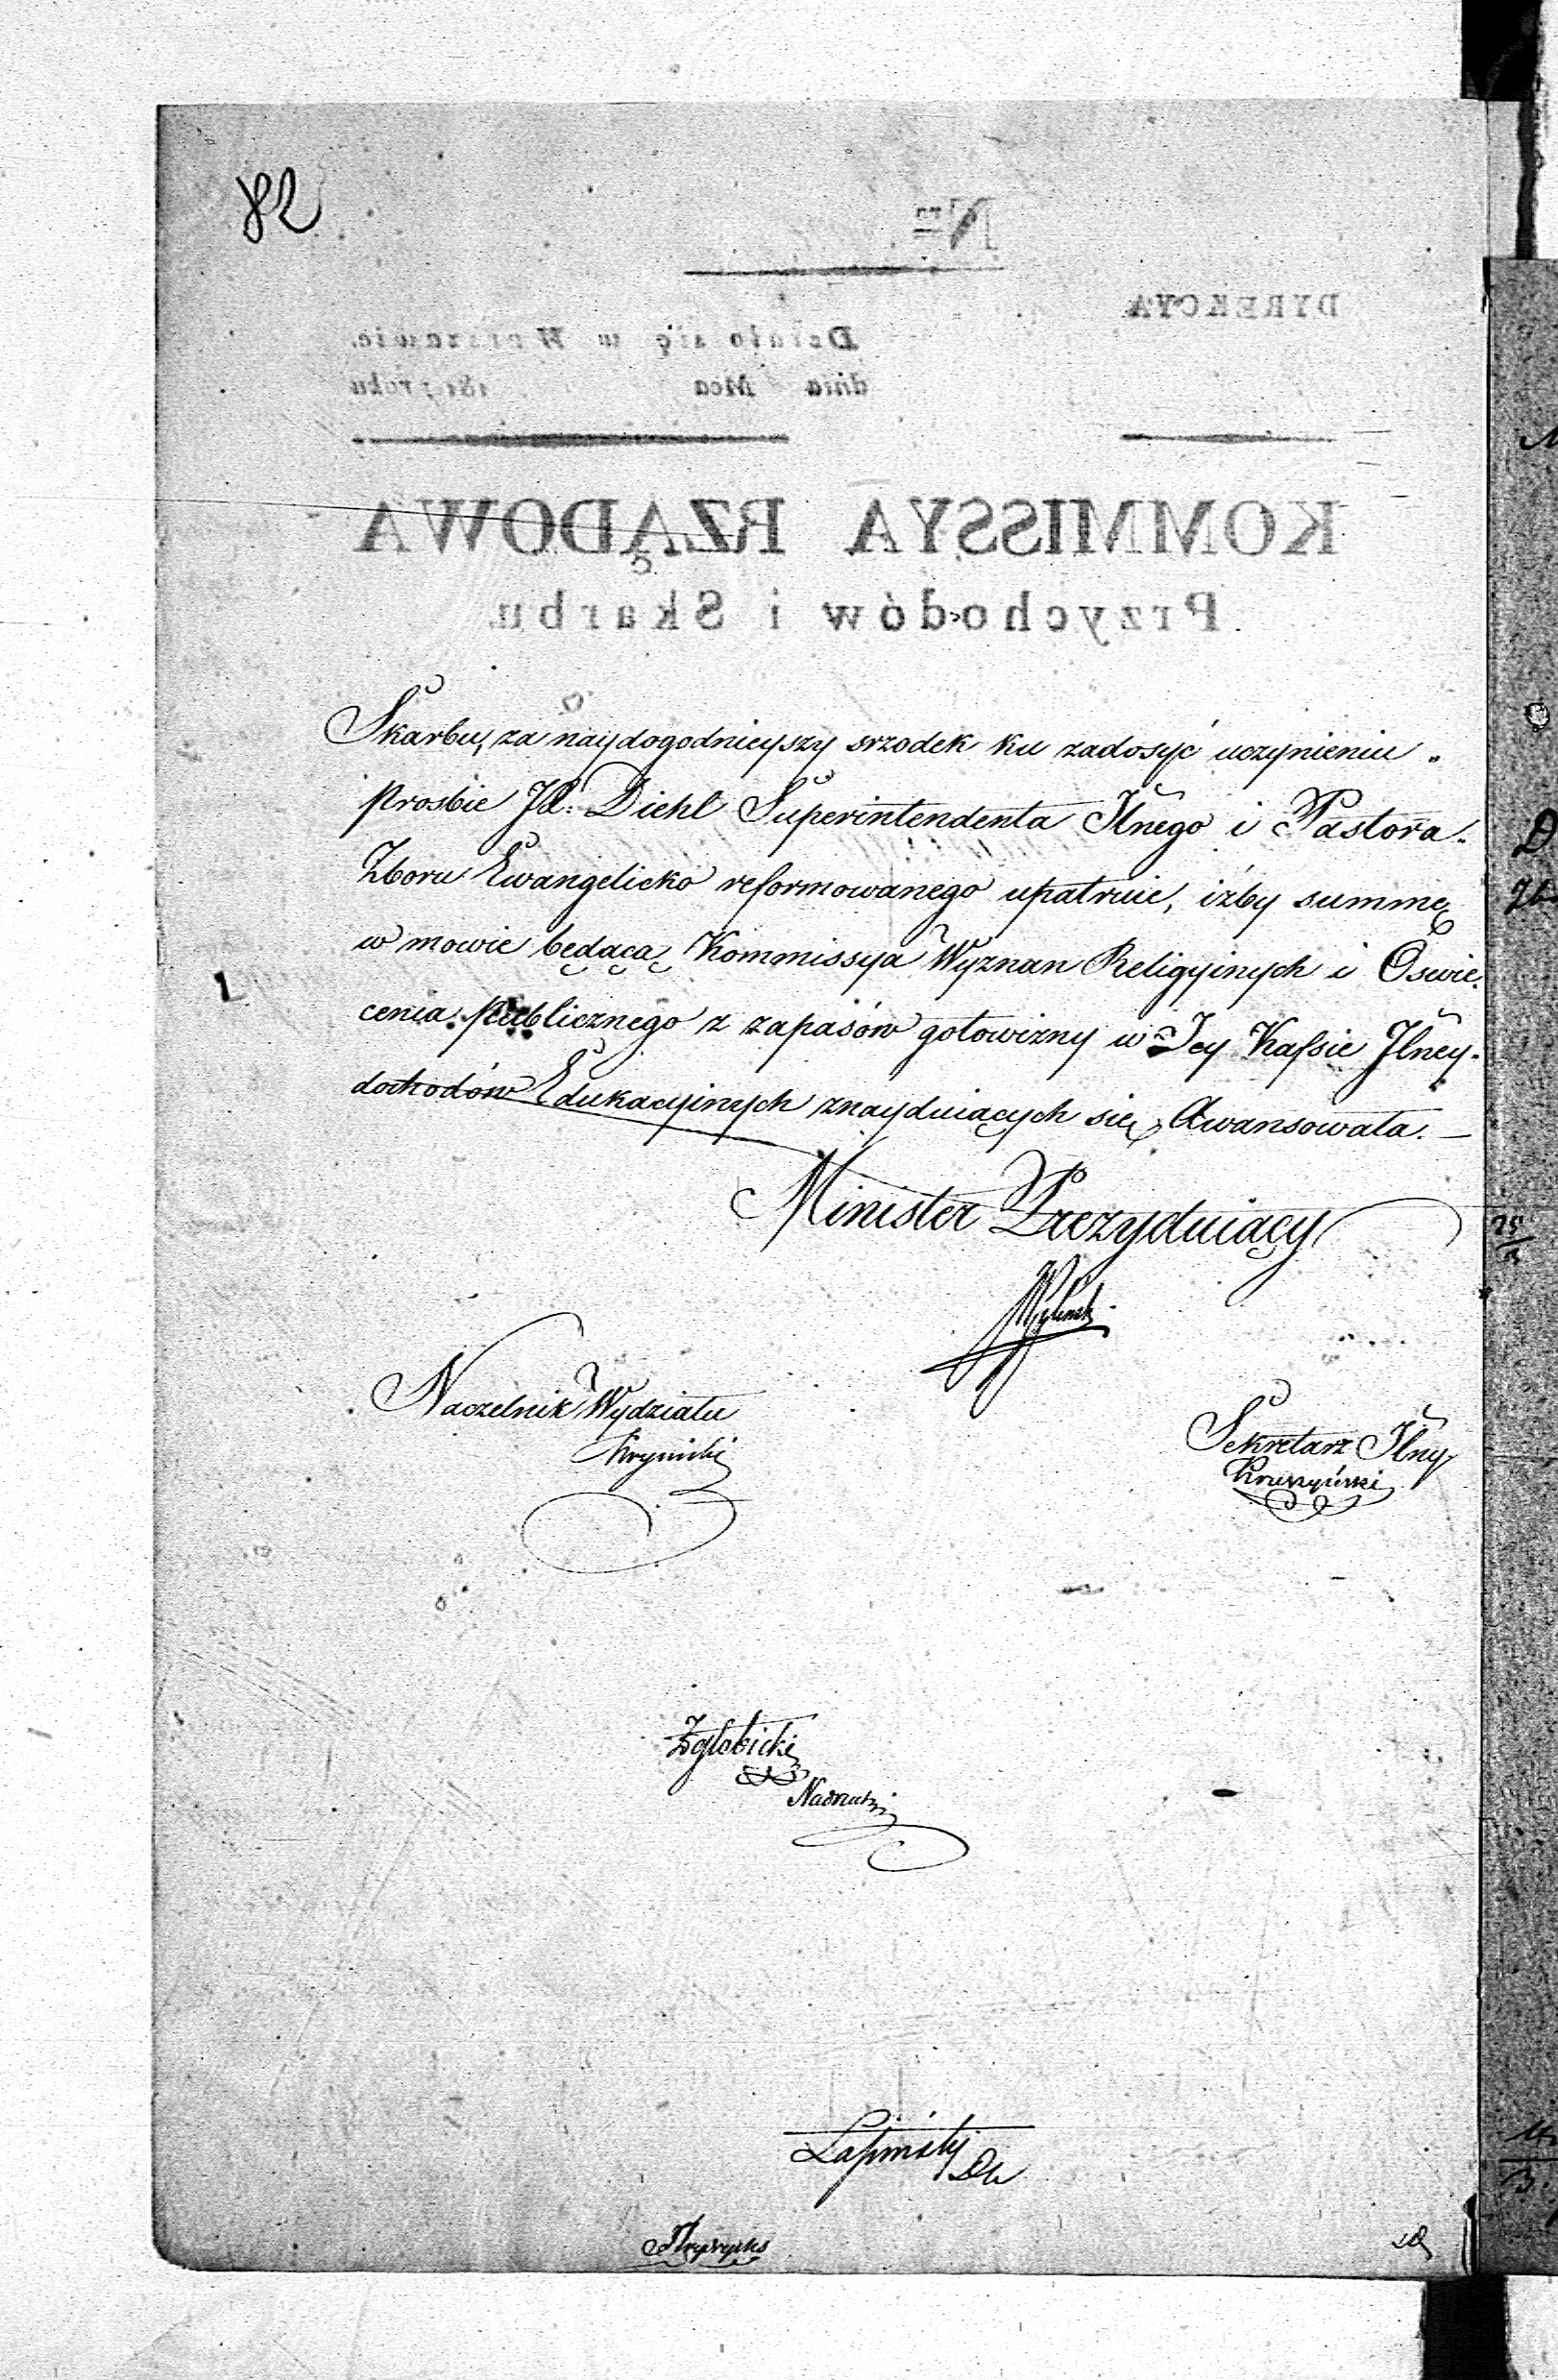 82
Nro
DYREKCYA
Działo się w Warszawie.
dnia Mca 181 roku
KOMMISSYA RZĄDOWA
Przychodów i Skarbu.
Skarbu, za naydogodnieyszy srzodek ku zadosyć uczynieniu „
prosbie JX. Diehl Superintendenta Jlnego i Pastora.
Zboru Ewangelicko reformowanego upatruie, iżby summę
w mowie będącą Kommissya Wyznan Religyinych i Oswie.
cenia publicznego z zapasów gotowizny w Jey Kassie Jlney.
dochodów Edukacyinych znayduiących się, Awansowała. —
Minister Prezyduiący
Naczelnik Wydziału
Sekretarz Jlny
Kruszyński
Zgłobicki
Łapiński